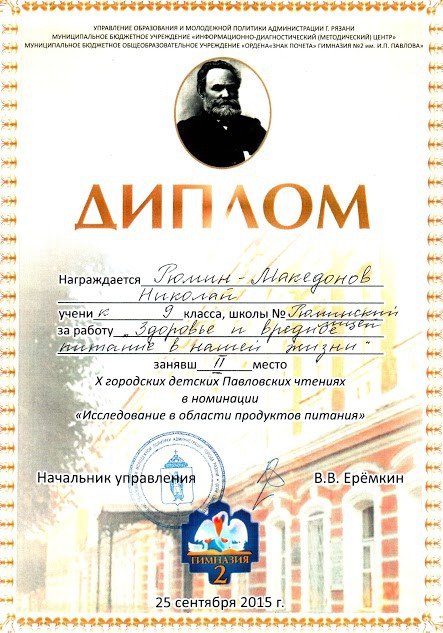 УПРАВЛЕНИЕ ОБРАЗОВАНИЯ И МОЛОДЕЖНОЙ ПОЛИТИКИ АДМИНИСТРАЦИИ Г. РЯЗАНИ
МУНИЦИПАЛЬНОЕ БЮДЖЕТНОЕ УЧРЕЖДЕНИЕ «ИНФОРМАЦИОННО-ДИАГНОСТИЧЕСКИЙ (МЕТОДИЧЕСКИЙ) ЦЕНТР»
МУНИЦИПАЛЬНОЕ БЮДЖЕТНОЕ ОБЩЕОБРАЗОВАТЕЛЬНОЕ УЧРЕЖДЕНИЕ «ОРДЕНА«ЗНАК ПОЧЕТА» ГИМНАЗИЯ №2 им. И.П. ПАВЛОВА»
ДИПЛОМ
Награждается Рюмин-Македонов
Николай
учени к 9 класса, школы № Рюминский
лицей
за работу „Здоровье и вредное
питание в нашей жизни"
занявш II место
X городских детских Павловских чтениях
в номинации
«Исследование в области продуктов питания»
Начальник управления В.В. Ерёмкин
ГИМНАЗИЯ
2
25 сентября 2015 г.